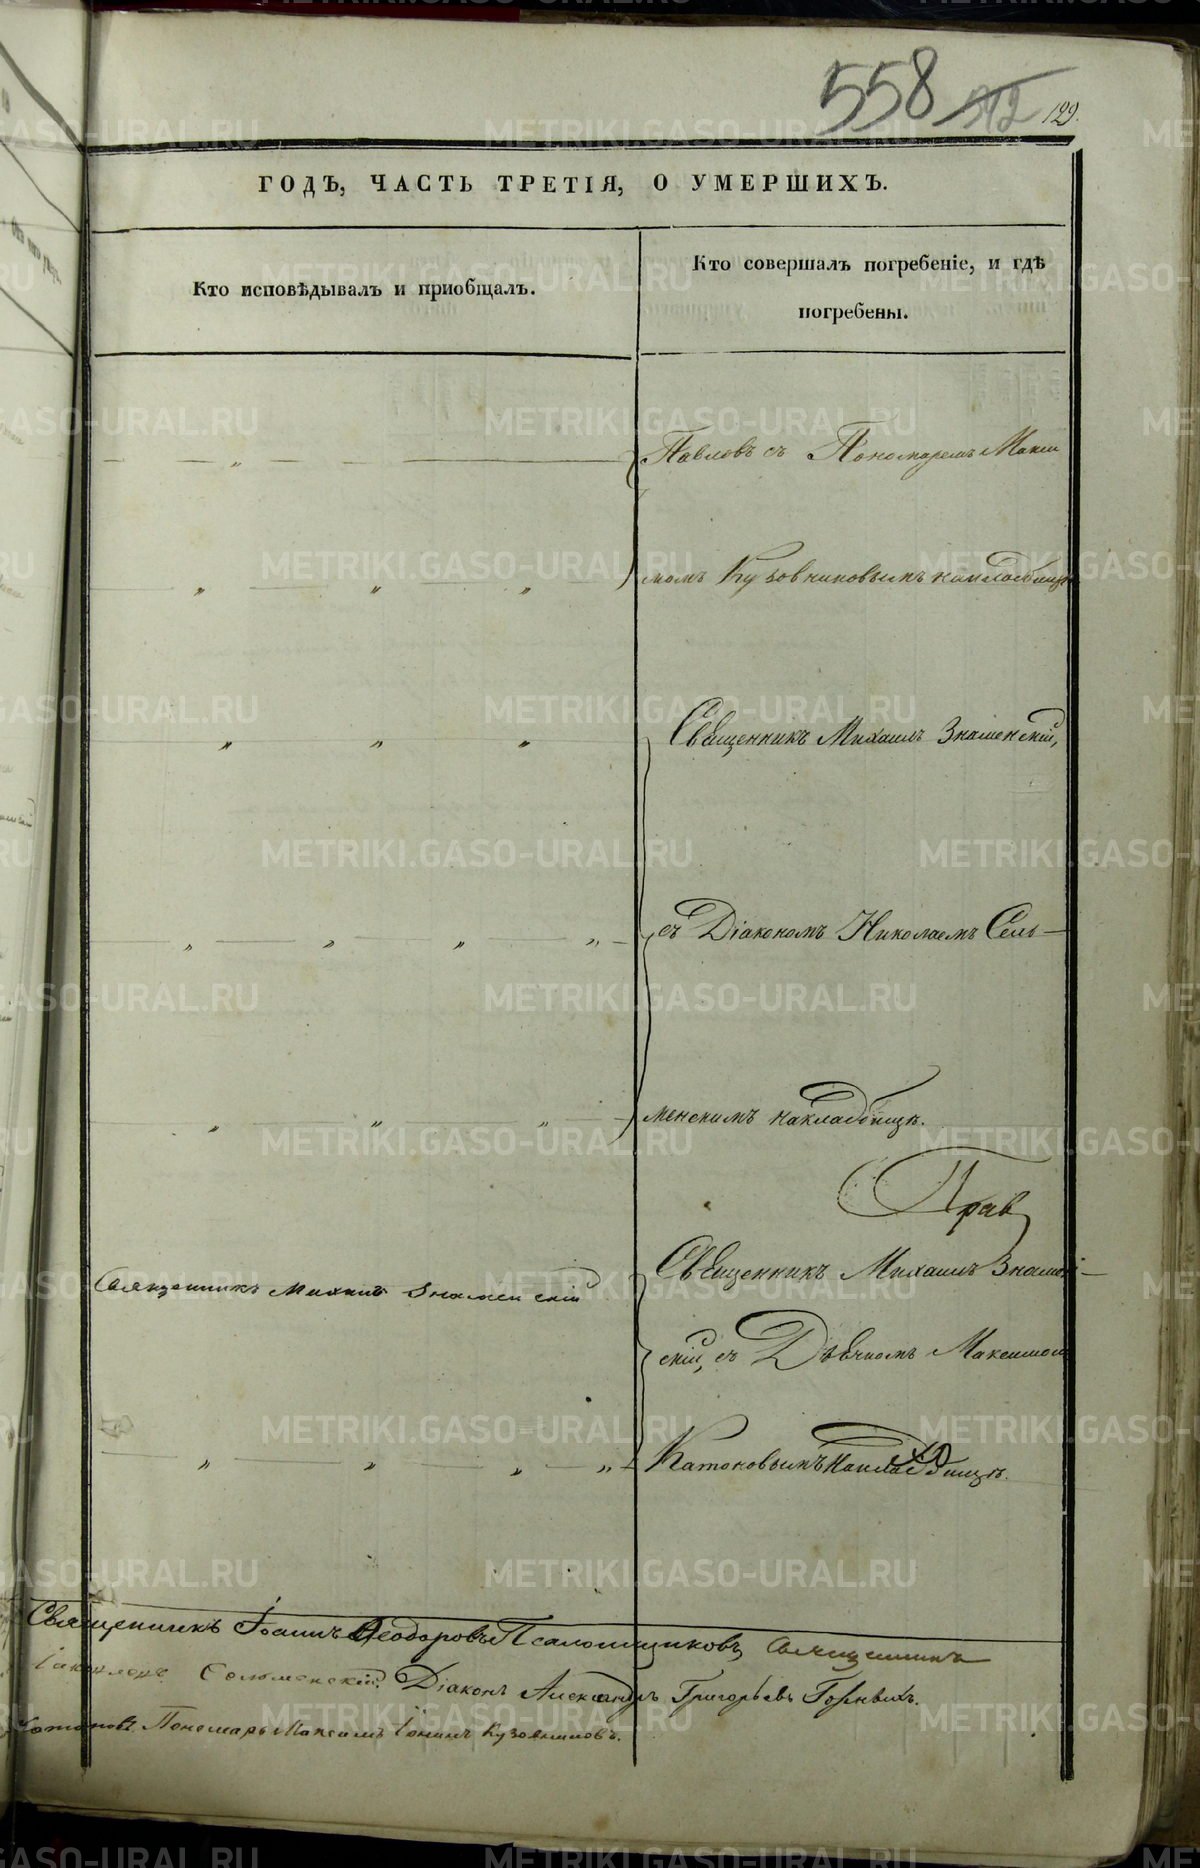 558 512 129.
ГОДЪ, ЧАСТЬ ТРЕТІЯ, О УМЕРШИХЪ.
Кто исповѣдывалъ и приобщалъ.
Кто совершалъ погребеніе, и гдѣ
погребены.
Павловъ съ Пономаремъ Макси
момъ Кузовниковымъ на кладбищѣ
Священникъ Михаилъ Знаменскій,
съ Діакономъ Николаемъ Сель-
менскимъ на кладбищѣ.
Прав
Священникъ Михаилъ Знаменскій
Священникъ Михаилъ Знамен-
скій, съ Дьячкомъ Максимом
Катоновымъ На кладбищѣ.
Священникъ Іоаннъ Ѳеодоровъ Псаломщиковъ Священникъ
Селменскій, Діаконъ Александръ Григорьевъ Горныхъ.
Катоновъ. Пономарь Максимъ Іонинъ Кузовниковъ.
METRIKI.GASO-URAL.RU